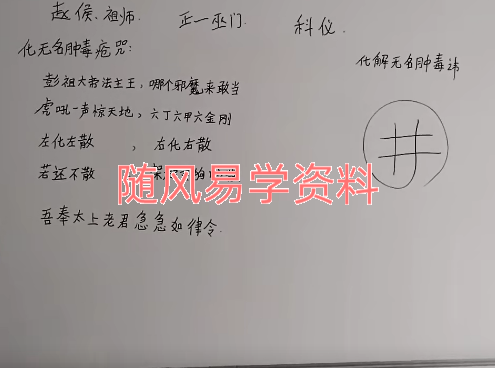 赵侯、祖师. 正一巫门. 科仪.
化无名肿毒疮咒: 化解无名肿毒讳
彭祖大帝法主王,哪个邪魔来敢当
虎吼一声惊天地,六丁六甲六金刚
左化左散 , 右化右散
若还不散
随风易学资料
吾奉太上老君急急如律令.
井